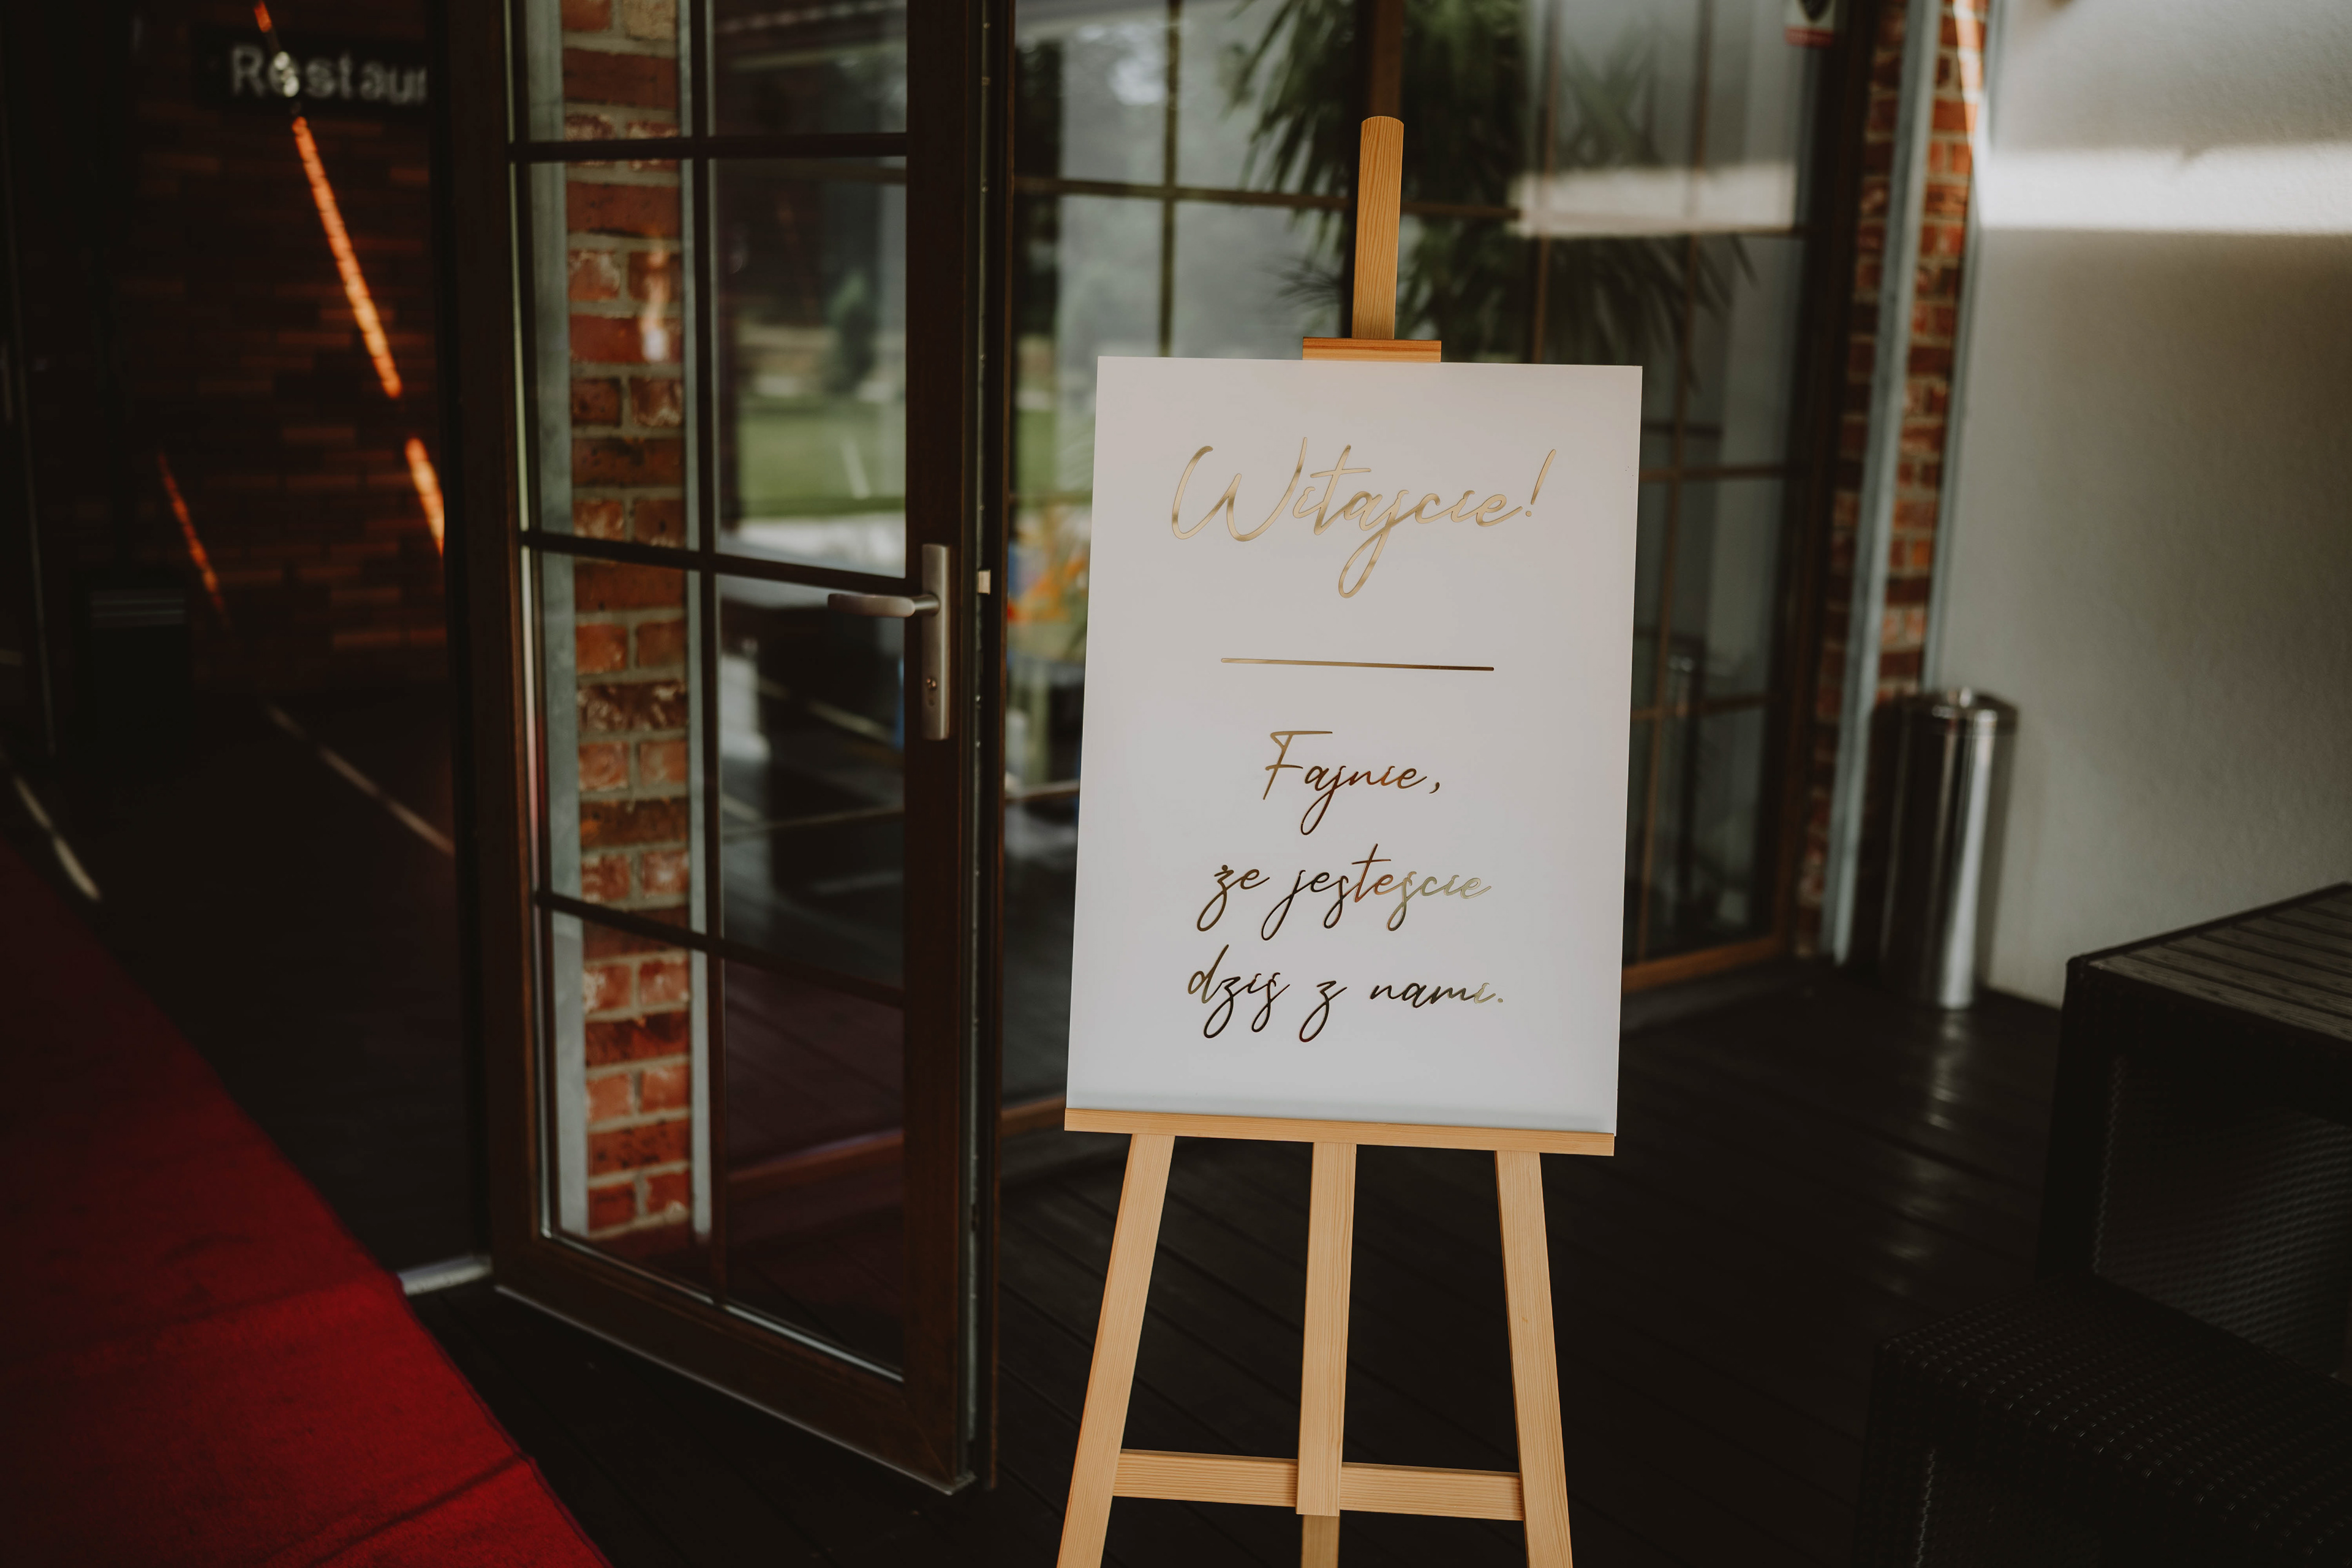 Restaur
Witajcie!
Fajnie,
że jesteście
dziś z nami.